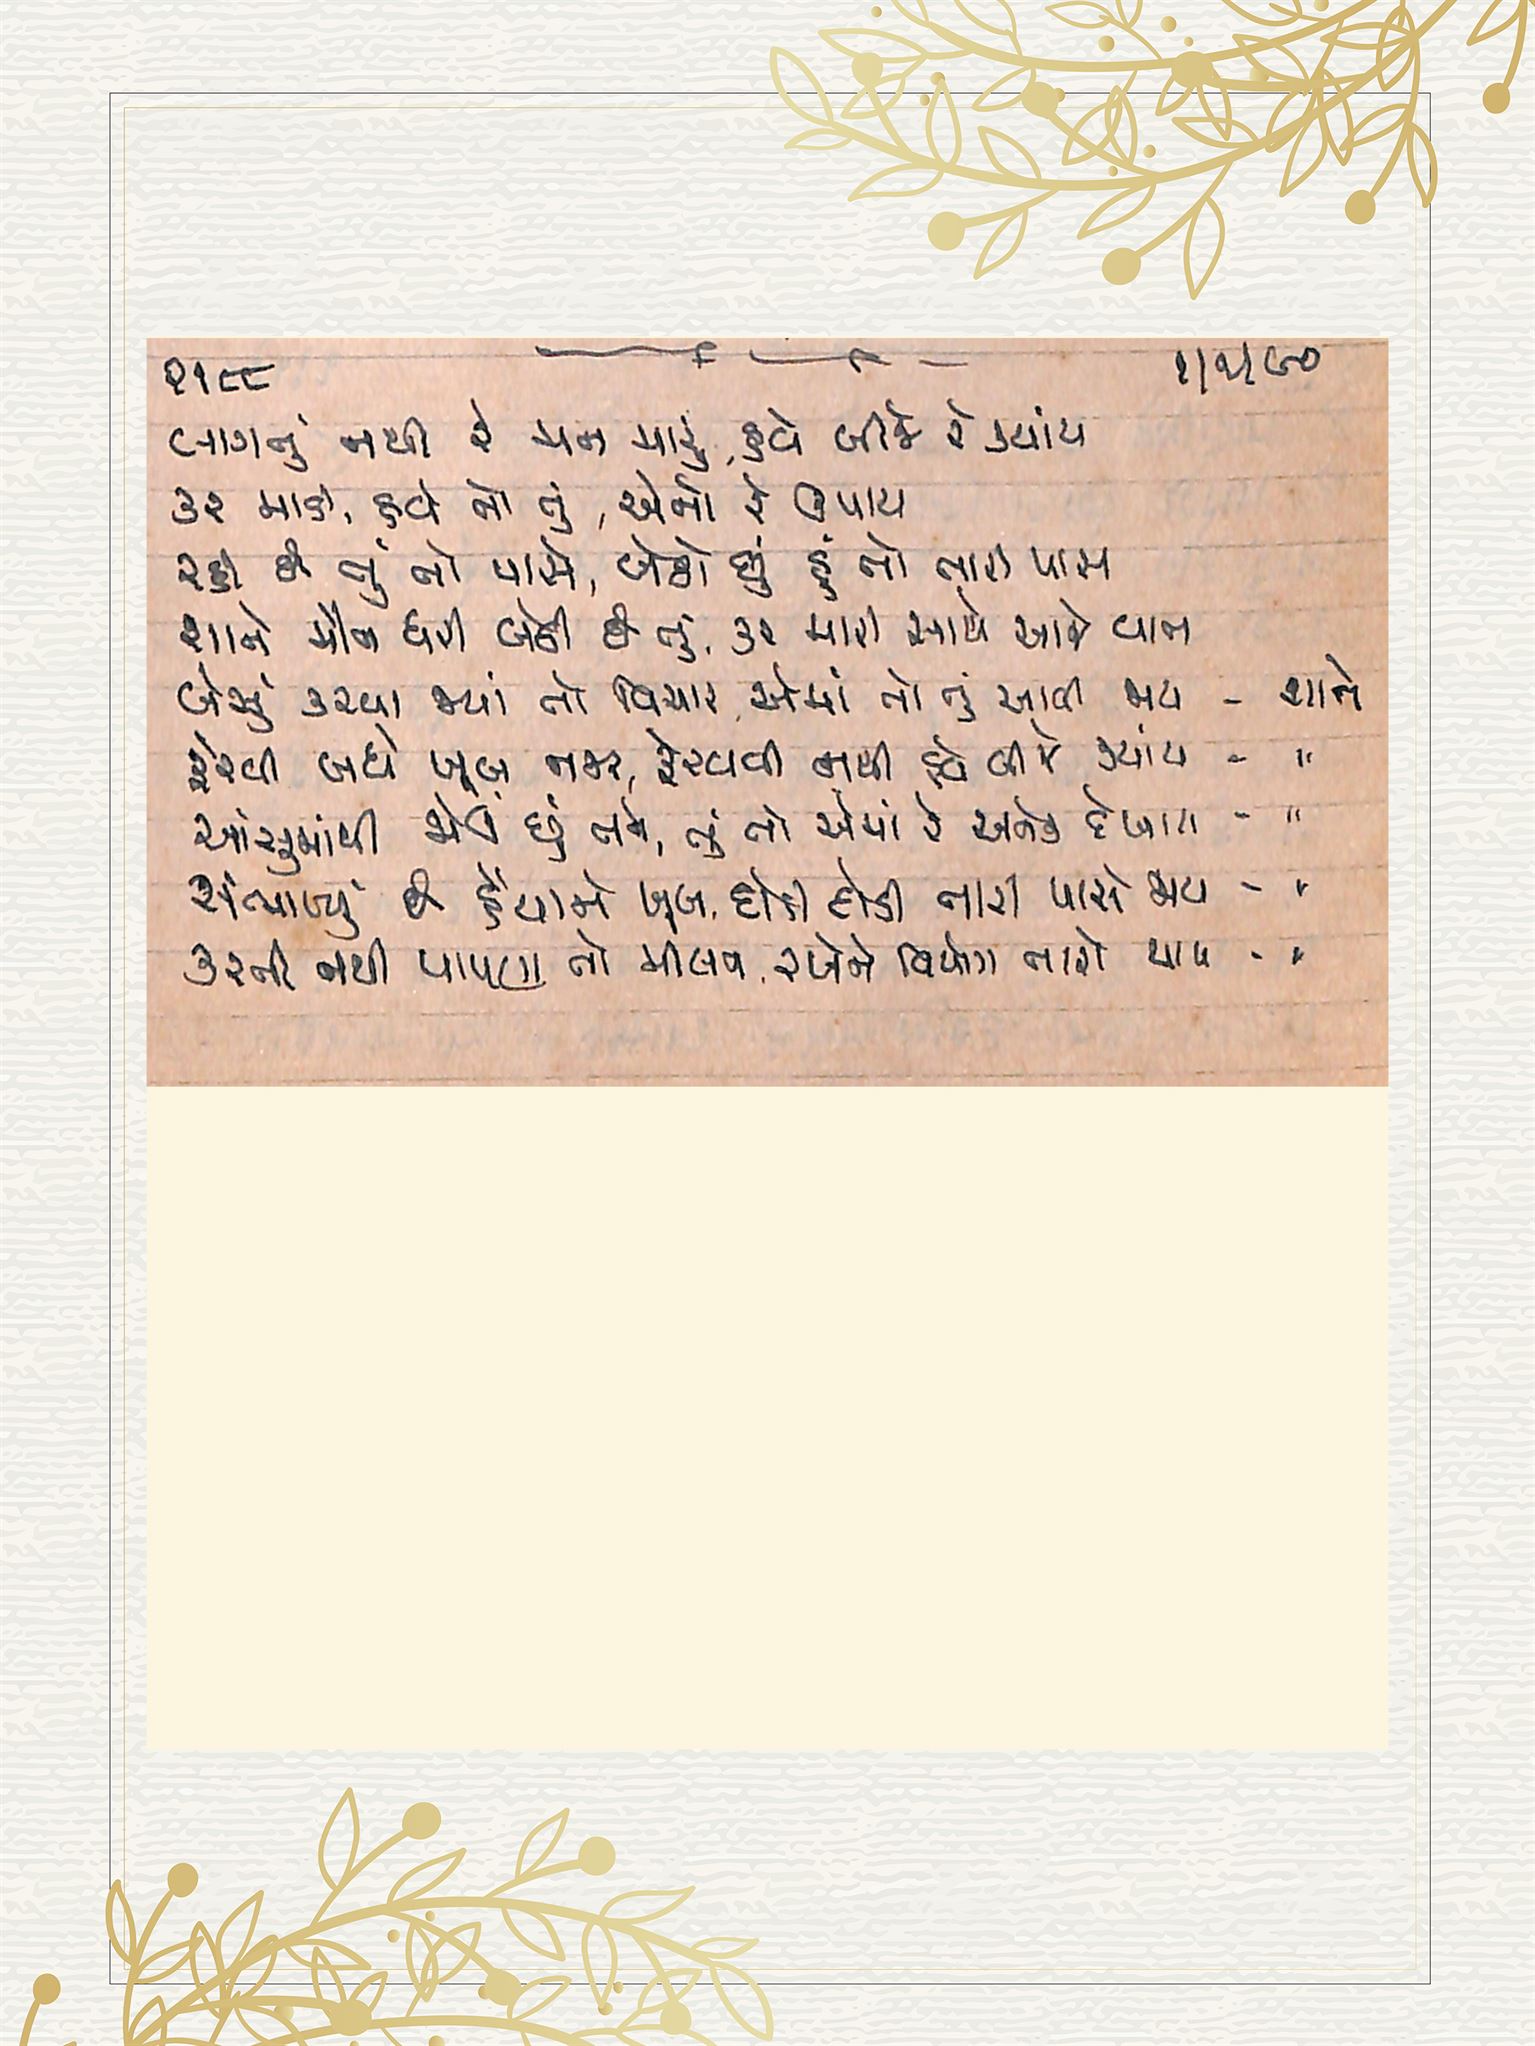 ૨૧૮૮ ૧/૧/૯૦
લાગતું નથી રે મન મારું, હવે બીજે રે ક્યાંય
કર માડી, હવે તો તું, એનો રે ઉપાય
રહી છે તું તો પાસે, બેઠો છું હું તો તારી પાસ
શાને મૌન ધરી બેઠી છે તું, કર મારી સાથે આજે વાત
બેસું કરવા જ્યાં તો વિચાર, એમાં તો તું આવી જાય - શાને
ફેરવી બધે ખૂબ નજર, ફેરવવી નથી હવે બીજે ક્યાંય - "
આંસુમાંથી જોઉં છું તને, તું તો એમાં રે અનેક દેખાય - "
સંભાળ્યું છે હૈયાને ખૂબ, દોડી દોડી તારી પાસે જાય - "
કરતી નથી પાંપણ તો મીલન, રખેને વિયોગ તારો થાય - "